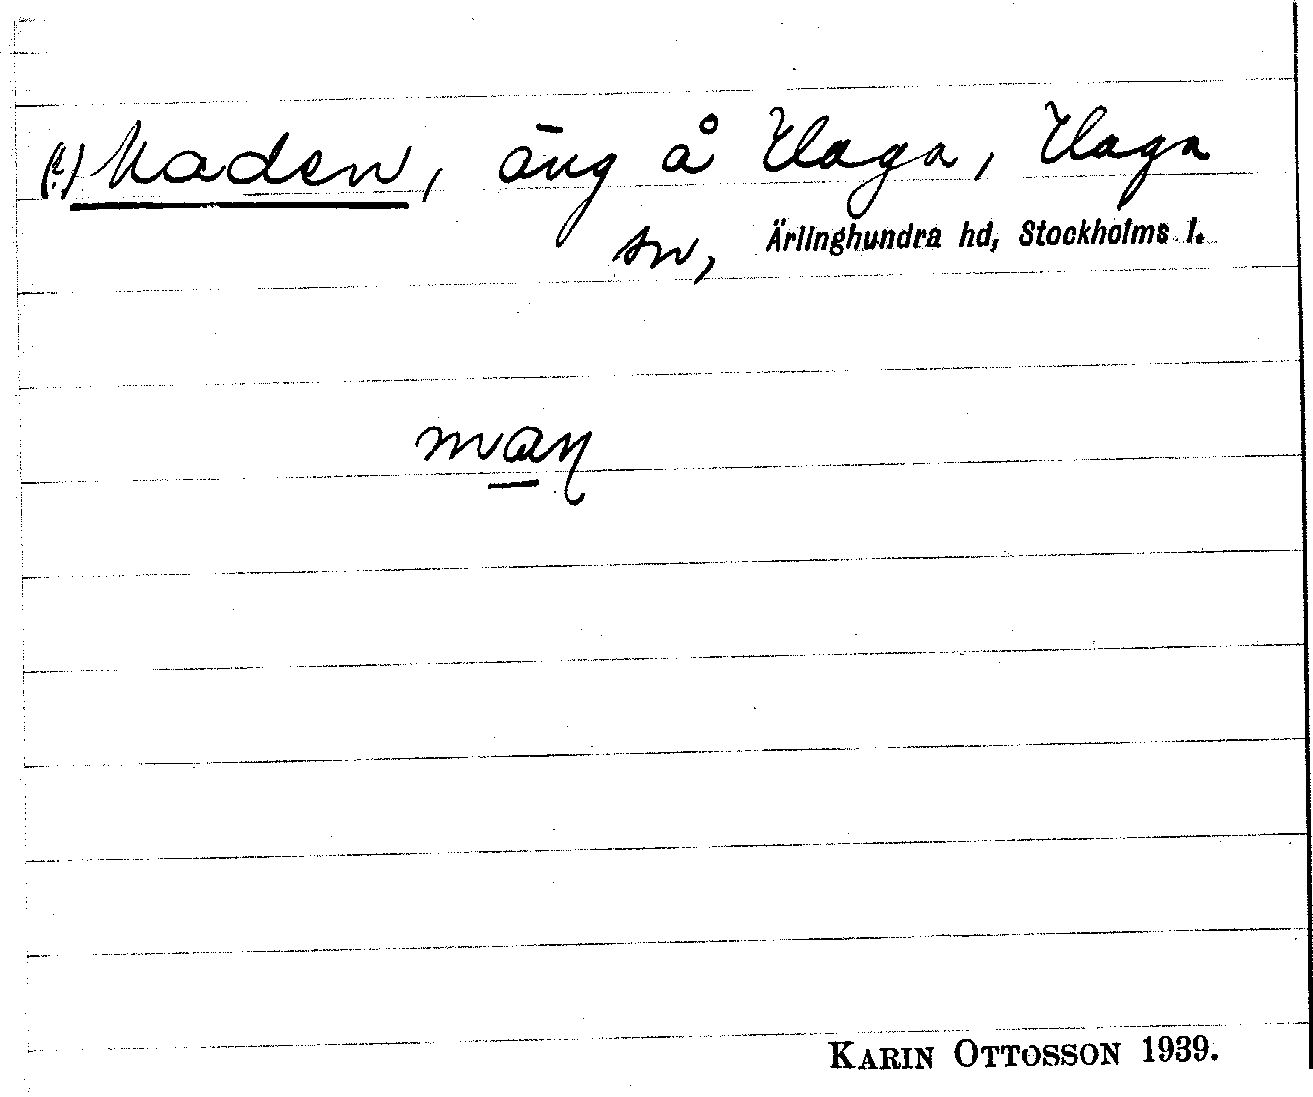 (?) Maden, äng å Haga, Haga
sn, Ärlinghundra hd, Stockholms l.
maɳ
KARIN OTTOSSON 1939.